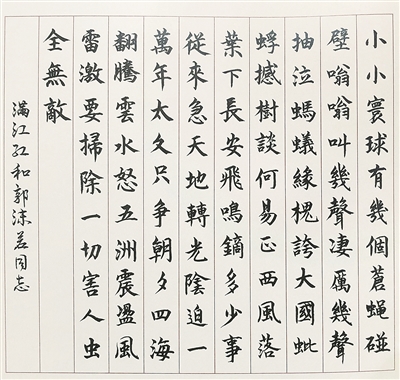 小小寰球有幾個蒼蠅碰
壁嗡嗡叫幾聲淒厲幾聲
抽泣螞蟻緣槐誇大國蚍
蜉撼樹談何易正西風落
葉下長安飛鳴鏑多少事
從來急天地轉光陰迫一
萬年太久只爭朝夕四海
翻騰雲水怒五洲震盪風
雷激要掃除一切害人虫
全無敵
滿江紅和郭沫若同志